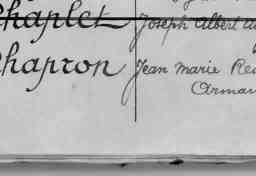 Chaplet Joseph Albert
Chapron Jean Marie
Arman